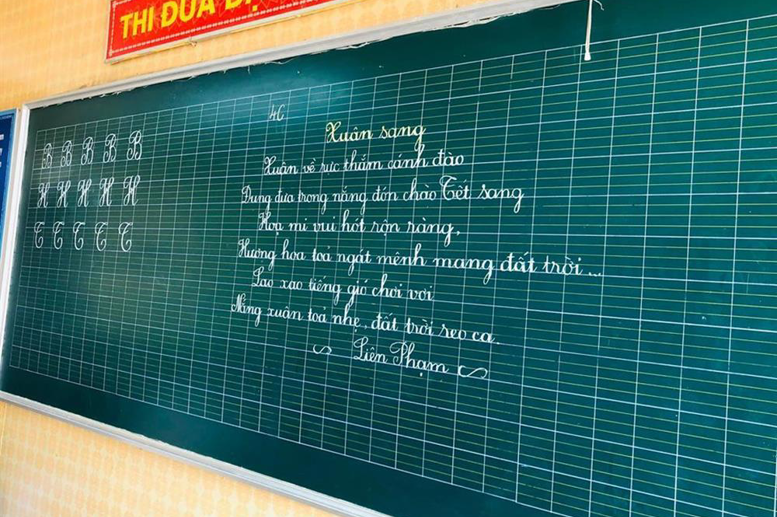 THI ĐUA DẠ
4C
B B B B B
H H H H H
T T T T T
Xuân sang
Xuân về rực thắm cánh đào
Đung đưa trong nắng đón chào Tết sang
Hoạ mi vui hót rộn ràng,
Hương hoa toả ngát mênh mang đất trời...
Lao xao tiếng gió chơi vơi
Nắng xuân toả nhẹ, đất trời reo ca.
Liên Phạm